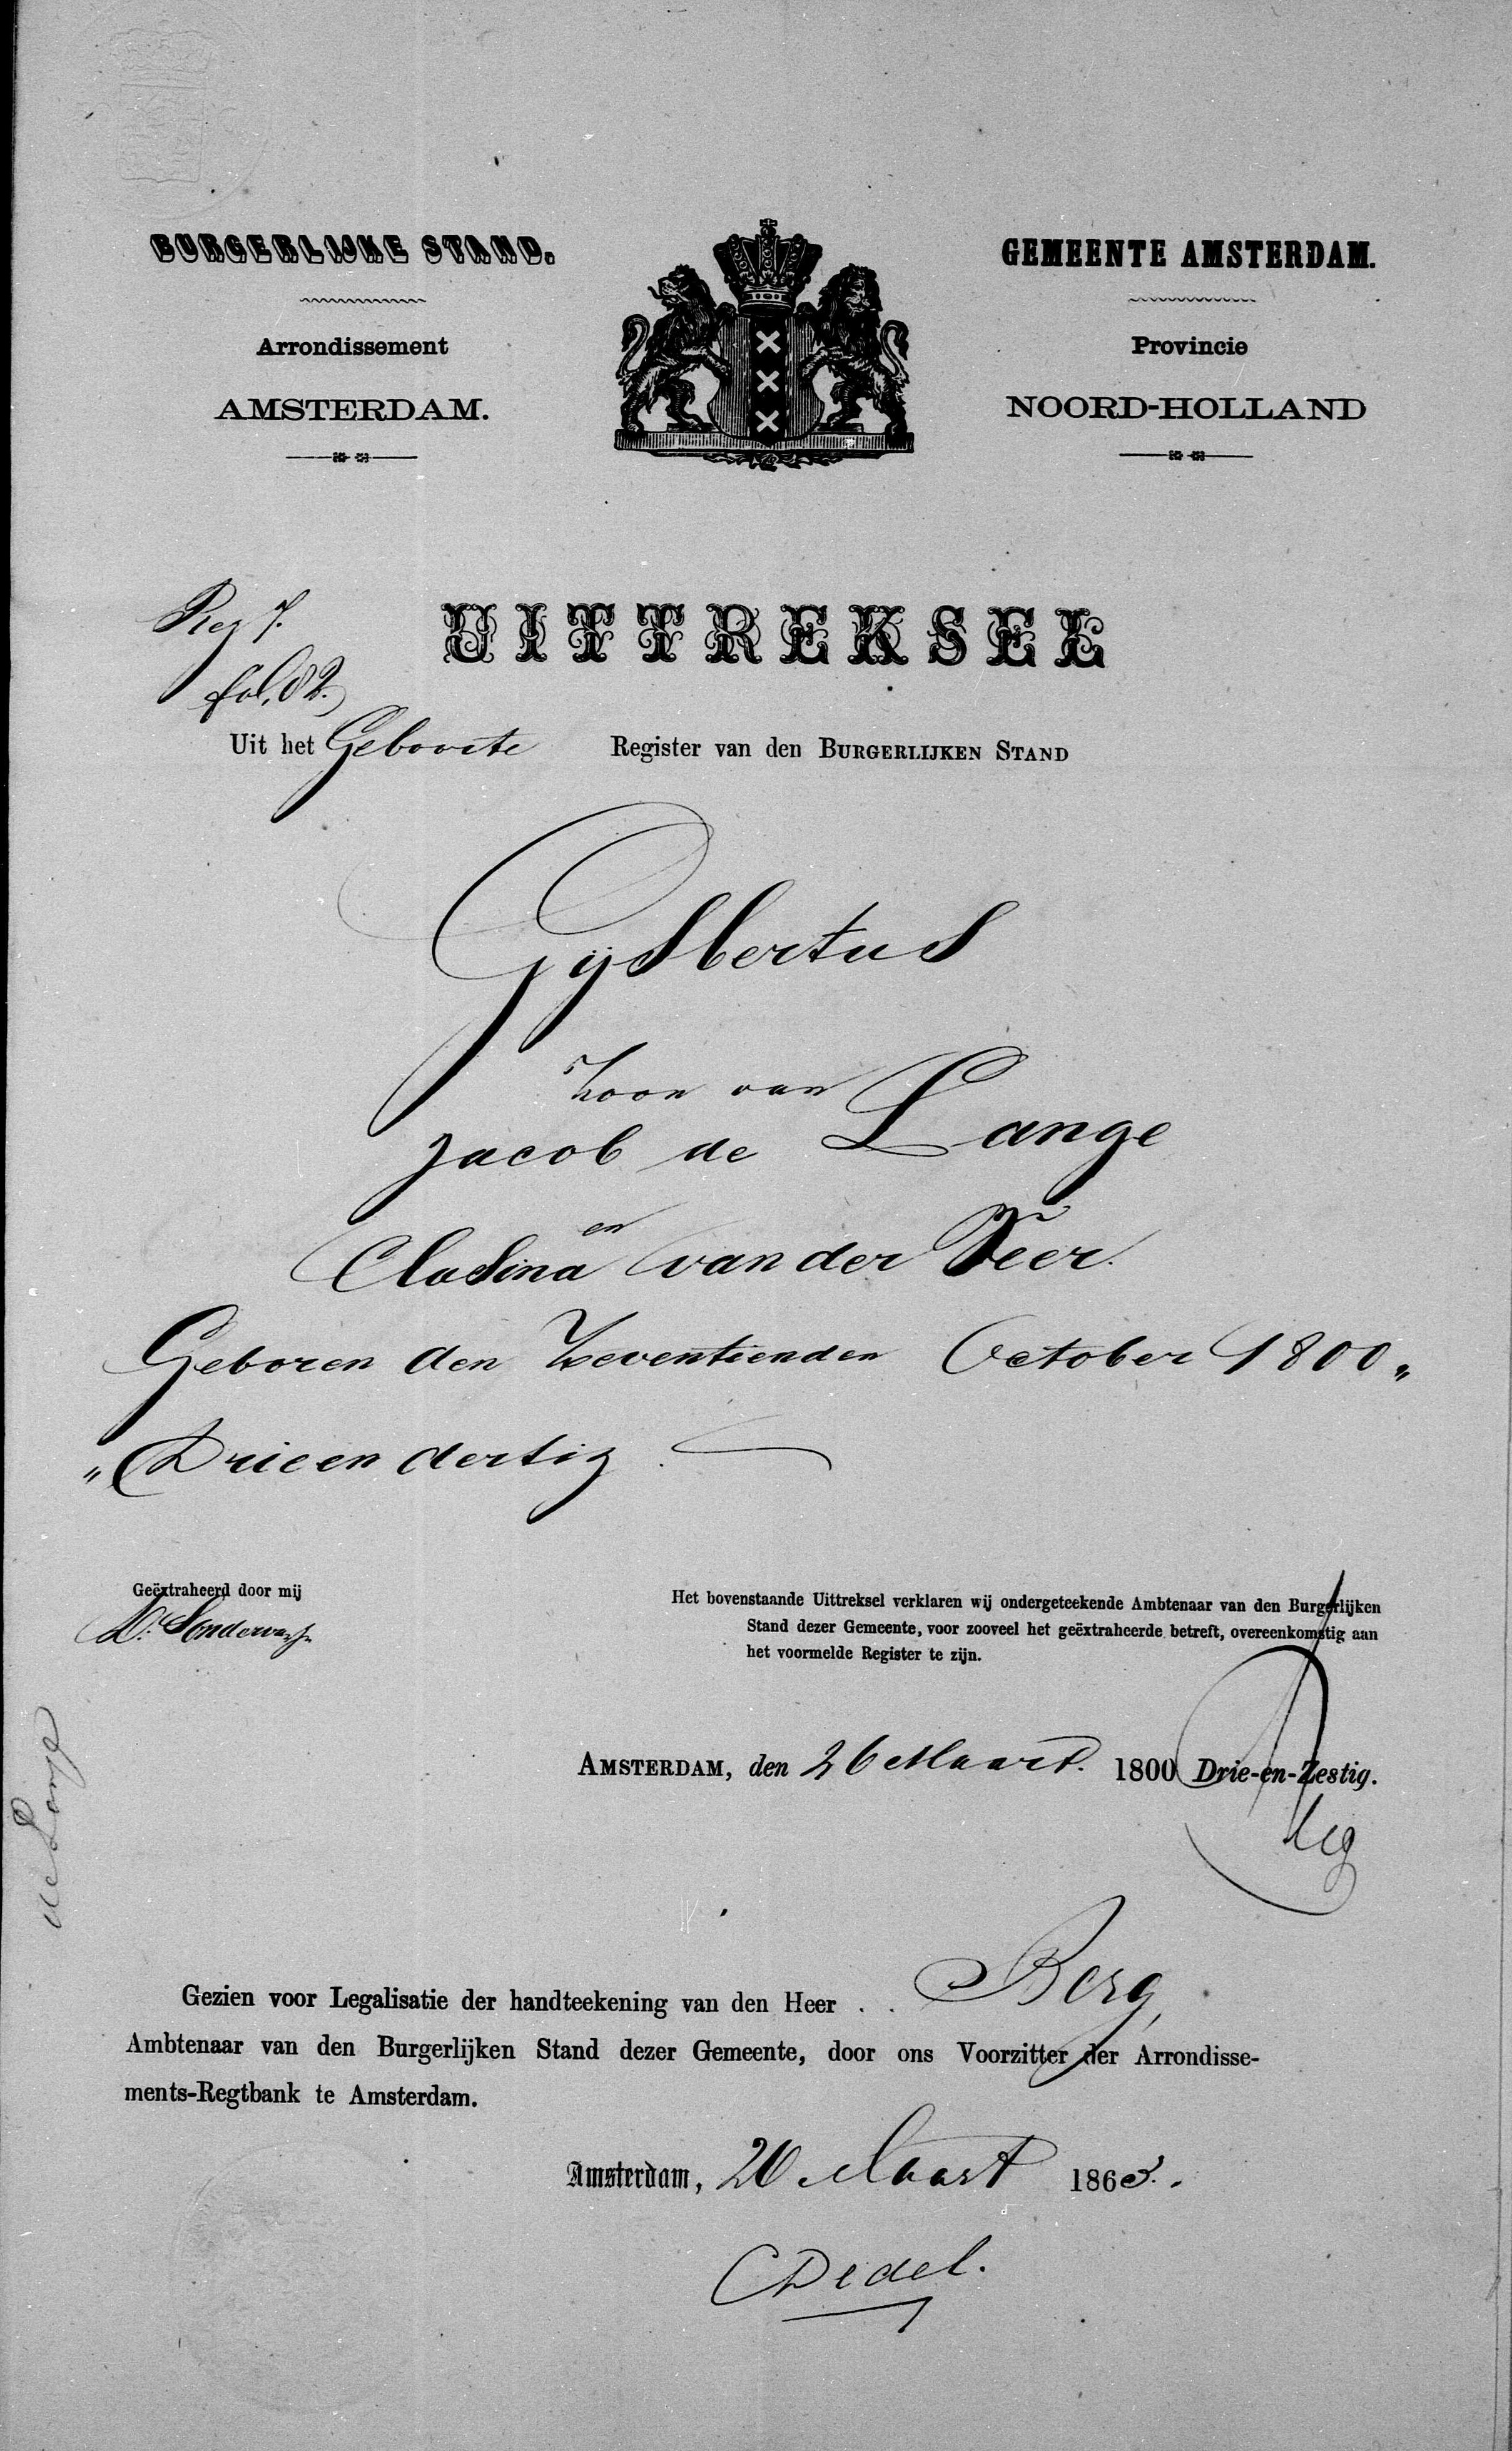 BURGERLIJKE STAND.
GEMEENTE AMSTERDAM.
Arrondissement
Provincie
AMSTERDAM.
NOORD-HOLLAND
XXX
Reg 7.
fol. 82.
UITTREKSEL
Uit het Geboorte Register van den BURGERLIJKEN STAND
Gijsbertus
Zoon van
Jacob de Lange
en
Clasina van der Veer.
Geboren den Zeventienden October 1800„
„Drieendertig.
Geëxtraheerd door mij
Het bovenstaande Uittreksel verklaren wij ondergeteekende Ambtenaar van den Burgerlijken
Stand dezer Gemeente, voor zooveel het geëxtraheerde betreft, overeenkomstig aan
het voormelde Register te zijn.
AMSTERDAM, den 26 Maart. 1800 Drie-en-Zestig.
de Lange
Gezien voor Legalisatie der handteekening van den Heer . . Berg,
Ambtenaar van den Burgerlijken Stand dezer Gemeente, door ons Voorzitter der Arrondisse-
ments-Regtbank te Amsterdam.
Amsterdam, 26 Maart 1863.
CDedel.